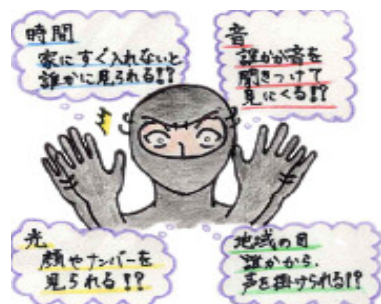 時間
家にすぐ入れないと
誰かに見られる!?
音
誰かが音を
聞きつけて
見にくる!?
光
顔やナンバーを
見られる!?
地域の目
誰かから、
声を掛けられる!?